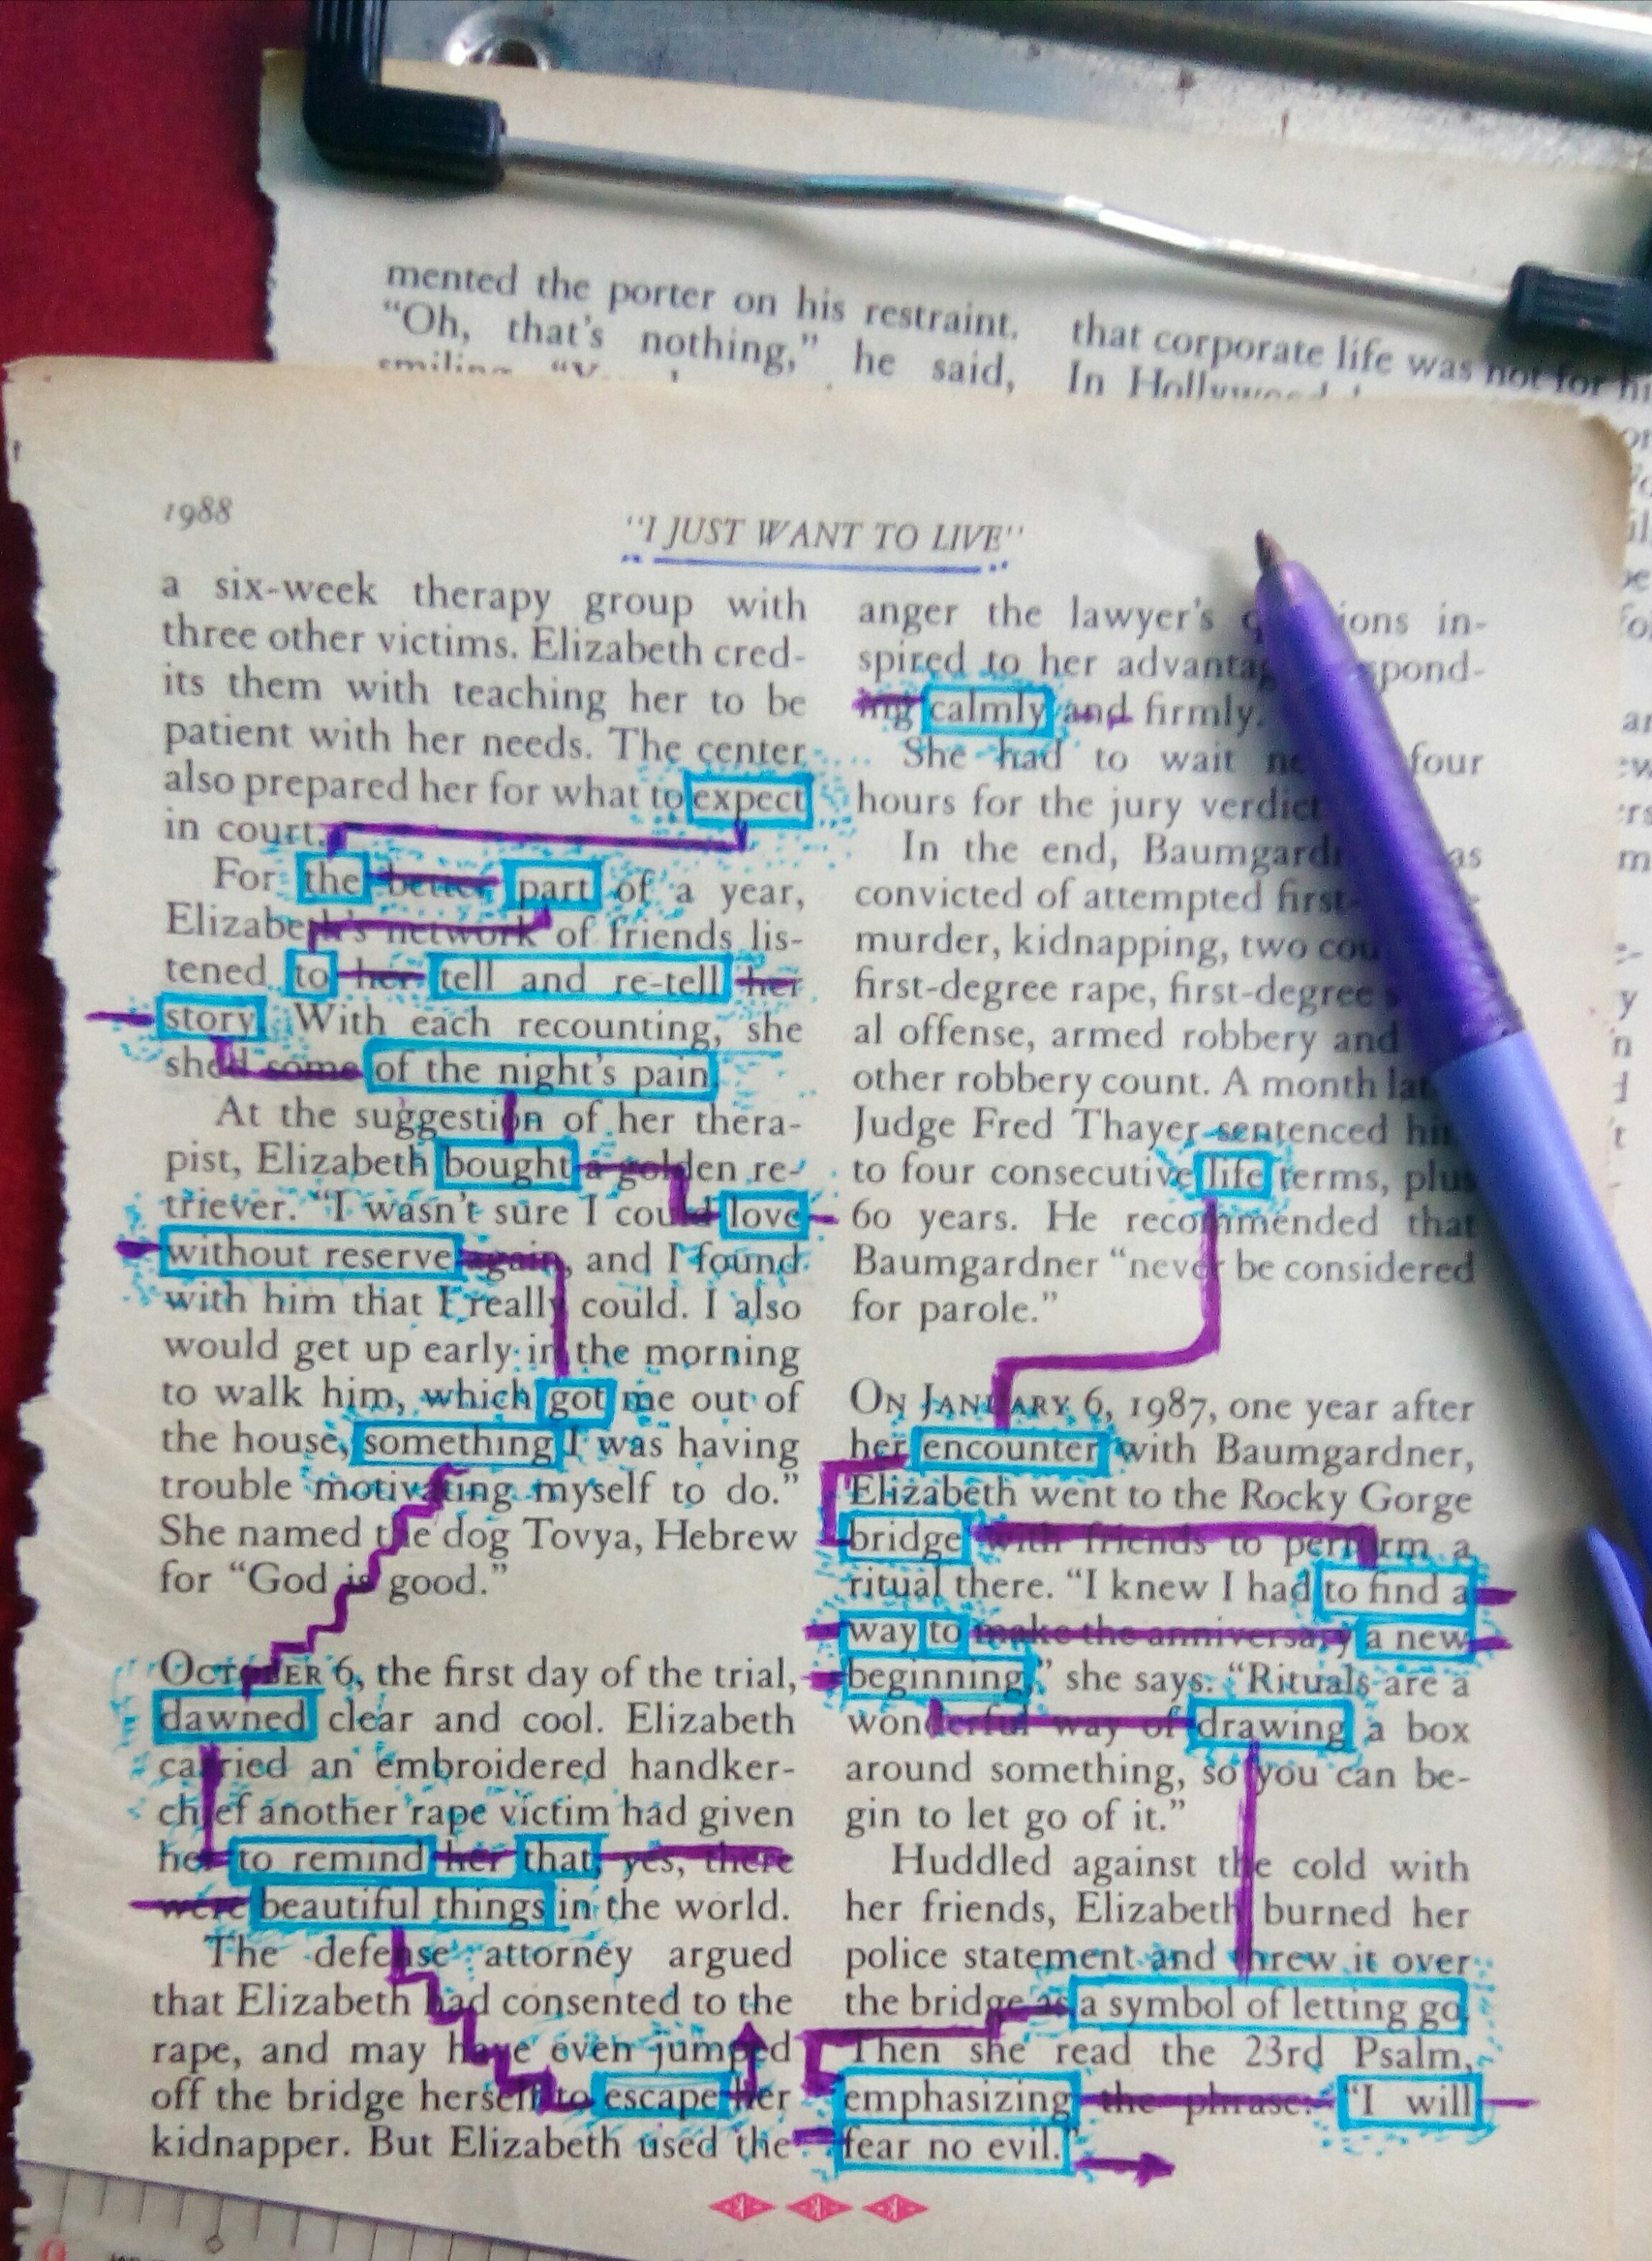 mented the porter on his restraint.
"Oh, that's nothing," he said,
that corporate life was not for
In Hollywood
1988
"I JUST WANT TO LIVE"
a six-week therapy group with
three other victims. Elizabeth cred-
its them with teaching her to be
patient with her needs. The center
also prepared her for what to expect
in court.
For the better part of a year,
Elizabeth's network of friends lis-
tened to her tell and re-tell her
story. With each recounting, she
shed some of the night's pain
At the suggestion of her thera-
pist, Elizabeth bought a golden re-
triever. "I wasn't sure I could love
without reserve again, and I found
with him that I really could. I also
would get up early in the morning
to walk him, which got me out of
the house, something I was having
trouble motivating myself to do."
She named the dog Tovya, Hebrew
for "God is good."
OCTOBER 6, the first day of the trial,
dawned clear and cool. Elizabeth
carried an embroidered handker-
chief another rape victim had given
her to remind her that, yes, there
were beautiful things in the world.
The defense attorney argued
that Elizabeth had consented to the
rape, and may have even jumped
off the bridge herself to escape her
kidnapper. But Elizabeth used the
anger the lawyer's in-
spired to her
ing calmly and firmly.
She had to wait four
hours for the jury verdict
In the end,
convicted of attempted
murder, kidnapping, two
first-degree rape, first-degree
al offense, armed robbery and
other robbery count. A month
Judge Fred Thayer sentenced
to four consecutive life terms, plus
60 years. He recommended that
Baumgardner "never be considered
for parole."
ON JANUARY 6, 1987, one year after
her encounter with Baumgardner,
Elizabeth went to the Rocky Gorge
bridge with friends to perform a
ritual there. "I knew I had to find a
way to make the anniversary a new
beginning," she says. "Rituals are a
wonderful way of drawing a box
around something, so you can be-
gin to let go of it."
Huddled against the cold with
her friends, Elizabeth burned her
police statement and threw it over
the bridge as a symbol of letting go
Then she read the 23rd Psalm,
emphasizing the phrase: "I will
fear no evil."